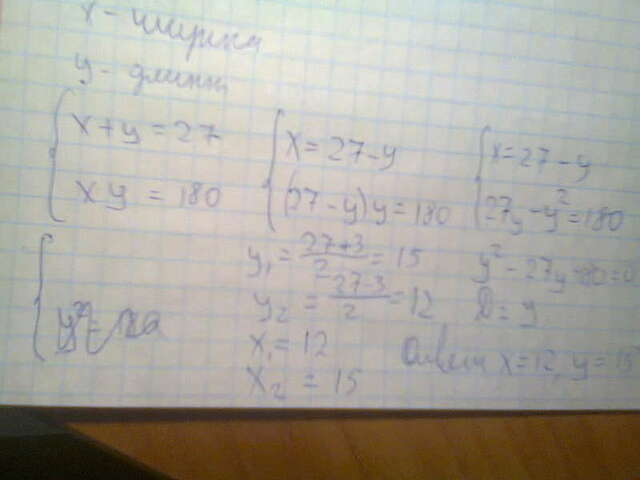 x - ширина
y - длина
x + y = 27
xy = 180
x = 27 - y
(27 - y)y = 180
x = 27 - y
27y - y² = 180
y² - 27y
D = 9
y₁ = (27+3)/2 = 15
y₂ = (27-3)/2 = 12
x₁ = 12
x₂ = 15
Ответ x = 12, y = 15